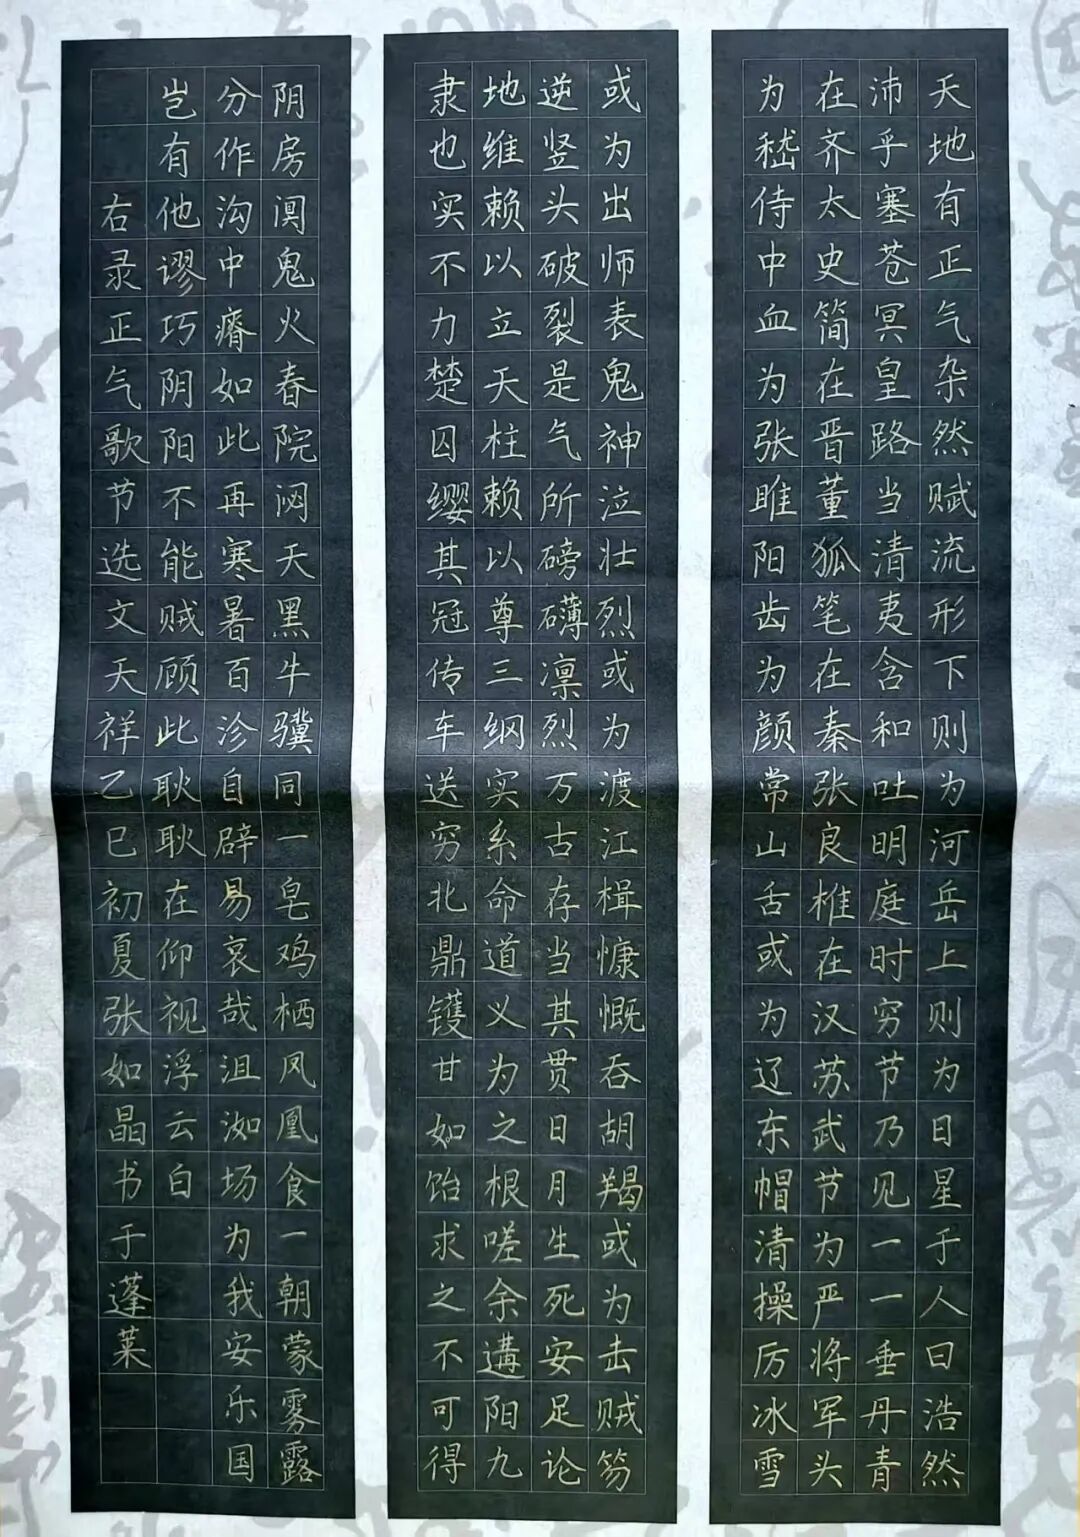 天地有正气杂然赋流形下则为河岳上则为日星于人曰浩然
沛乎塞苍冥皇路当清夷含和吐明庭时穷节乃见一一垂丹青
在齐太史简在晋董狐笔在秦张良椎在汉苏武节为严将军头
为嵇侍中血为张睢阳齿为颜常山舌或为辽东帽清操厉冰雪
或为出师表鬼神泣壮烈或为渡江楫慷慨吞胡羯或为击贼笏
逆竖头破裂是气所磅礴凛烈万古存当其贯日月生死安足论
地维赖以立天柱赖以尊三纲实系命道义为之根嗟余遘阳九
隶也实不力楚囚缨其冠传车送穷北鼎镬甘如饴求之不可得
阴房阒鬼火春院闷天黑牛骥同一皂鸡栖凤凰食一朝蒙雾露
分作沟中瘠如此再寒暑百沴自辟易哀哉沮洳场为我安乐国
岂有他谬巧阴阳不能贼顾此耿耿在仰视浮云白
右录正气歌节选文天祥乙巳初夏张如晶书于蓬莱